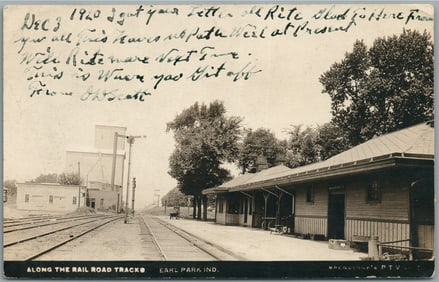 Dec 3 1910 I got your Letter all Rite Glad to Here From
you all This Leaves us Both Well at Present
Will Rite more Next Time
This is Where you Git off
From
ALONG THE RAIL ROAD TRACKS EARL PARK IND.